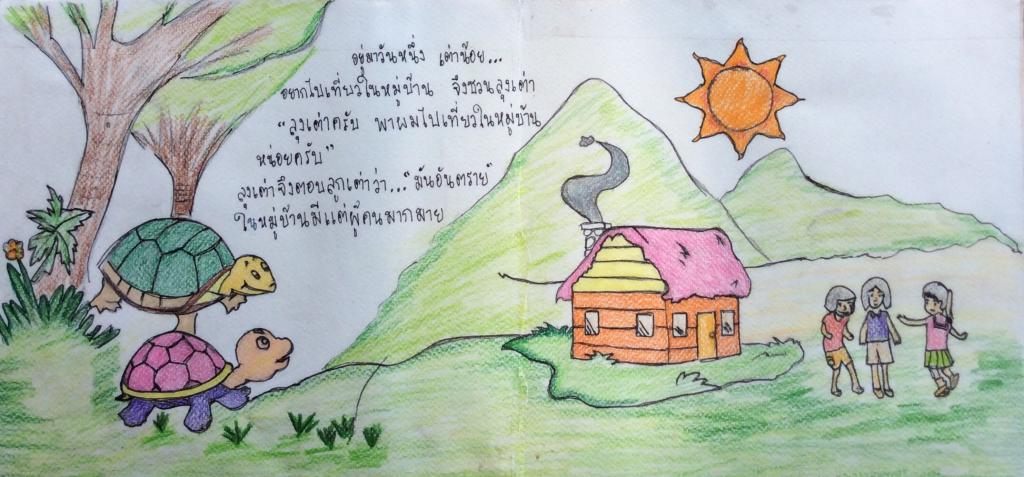 อยู่มาวันหนึ่ง เต่าน้อย...
อยากไปเที่ยวในหมู่บ้าน จึงชวนลุงเต่า
"ลุงเต่าครับ พาผมไปเที่ยวในหมู่บ้าน
หน่อยครับ"
ลุงเต่าจึงตอบลูกเต่าว่า..."มันอันตราย"
ในหมู่บ้านมีแต่ผู้คนมากมาย